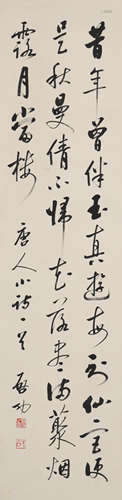 昔年曾伴玉真遊每到仙宮便
是秋曼倩不歸花落盡滿藂烟
露月當樓
唐人小詩一首 啟功